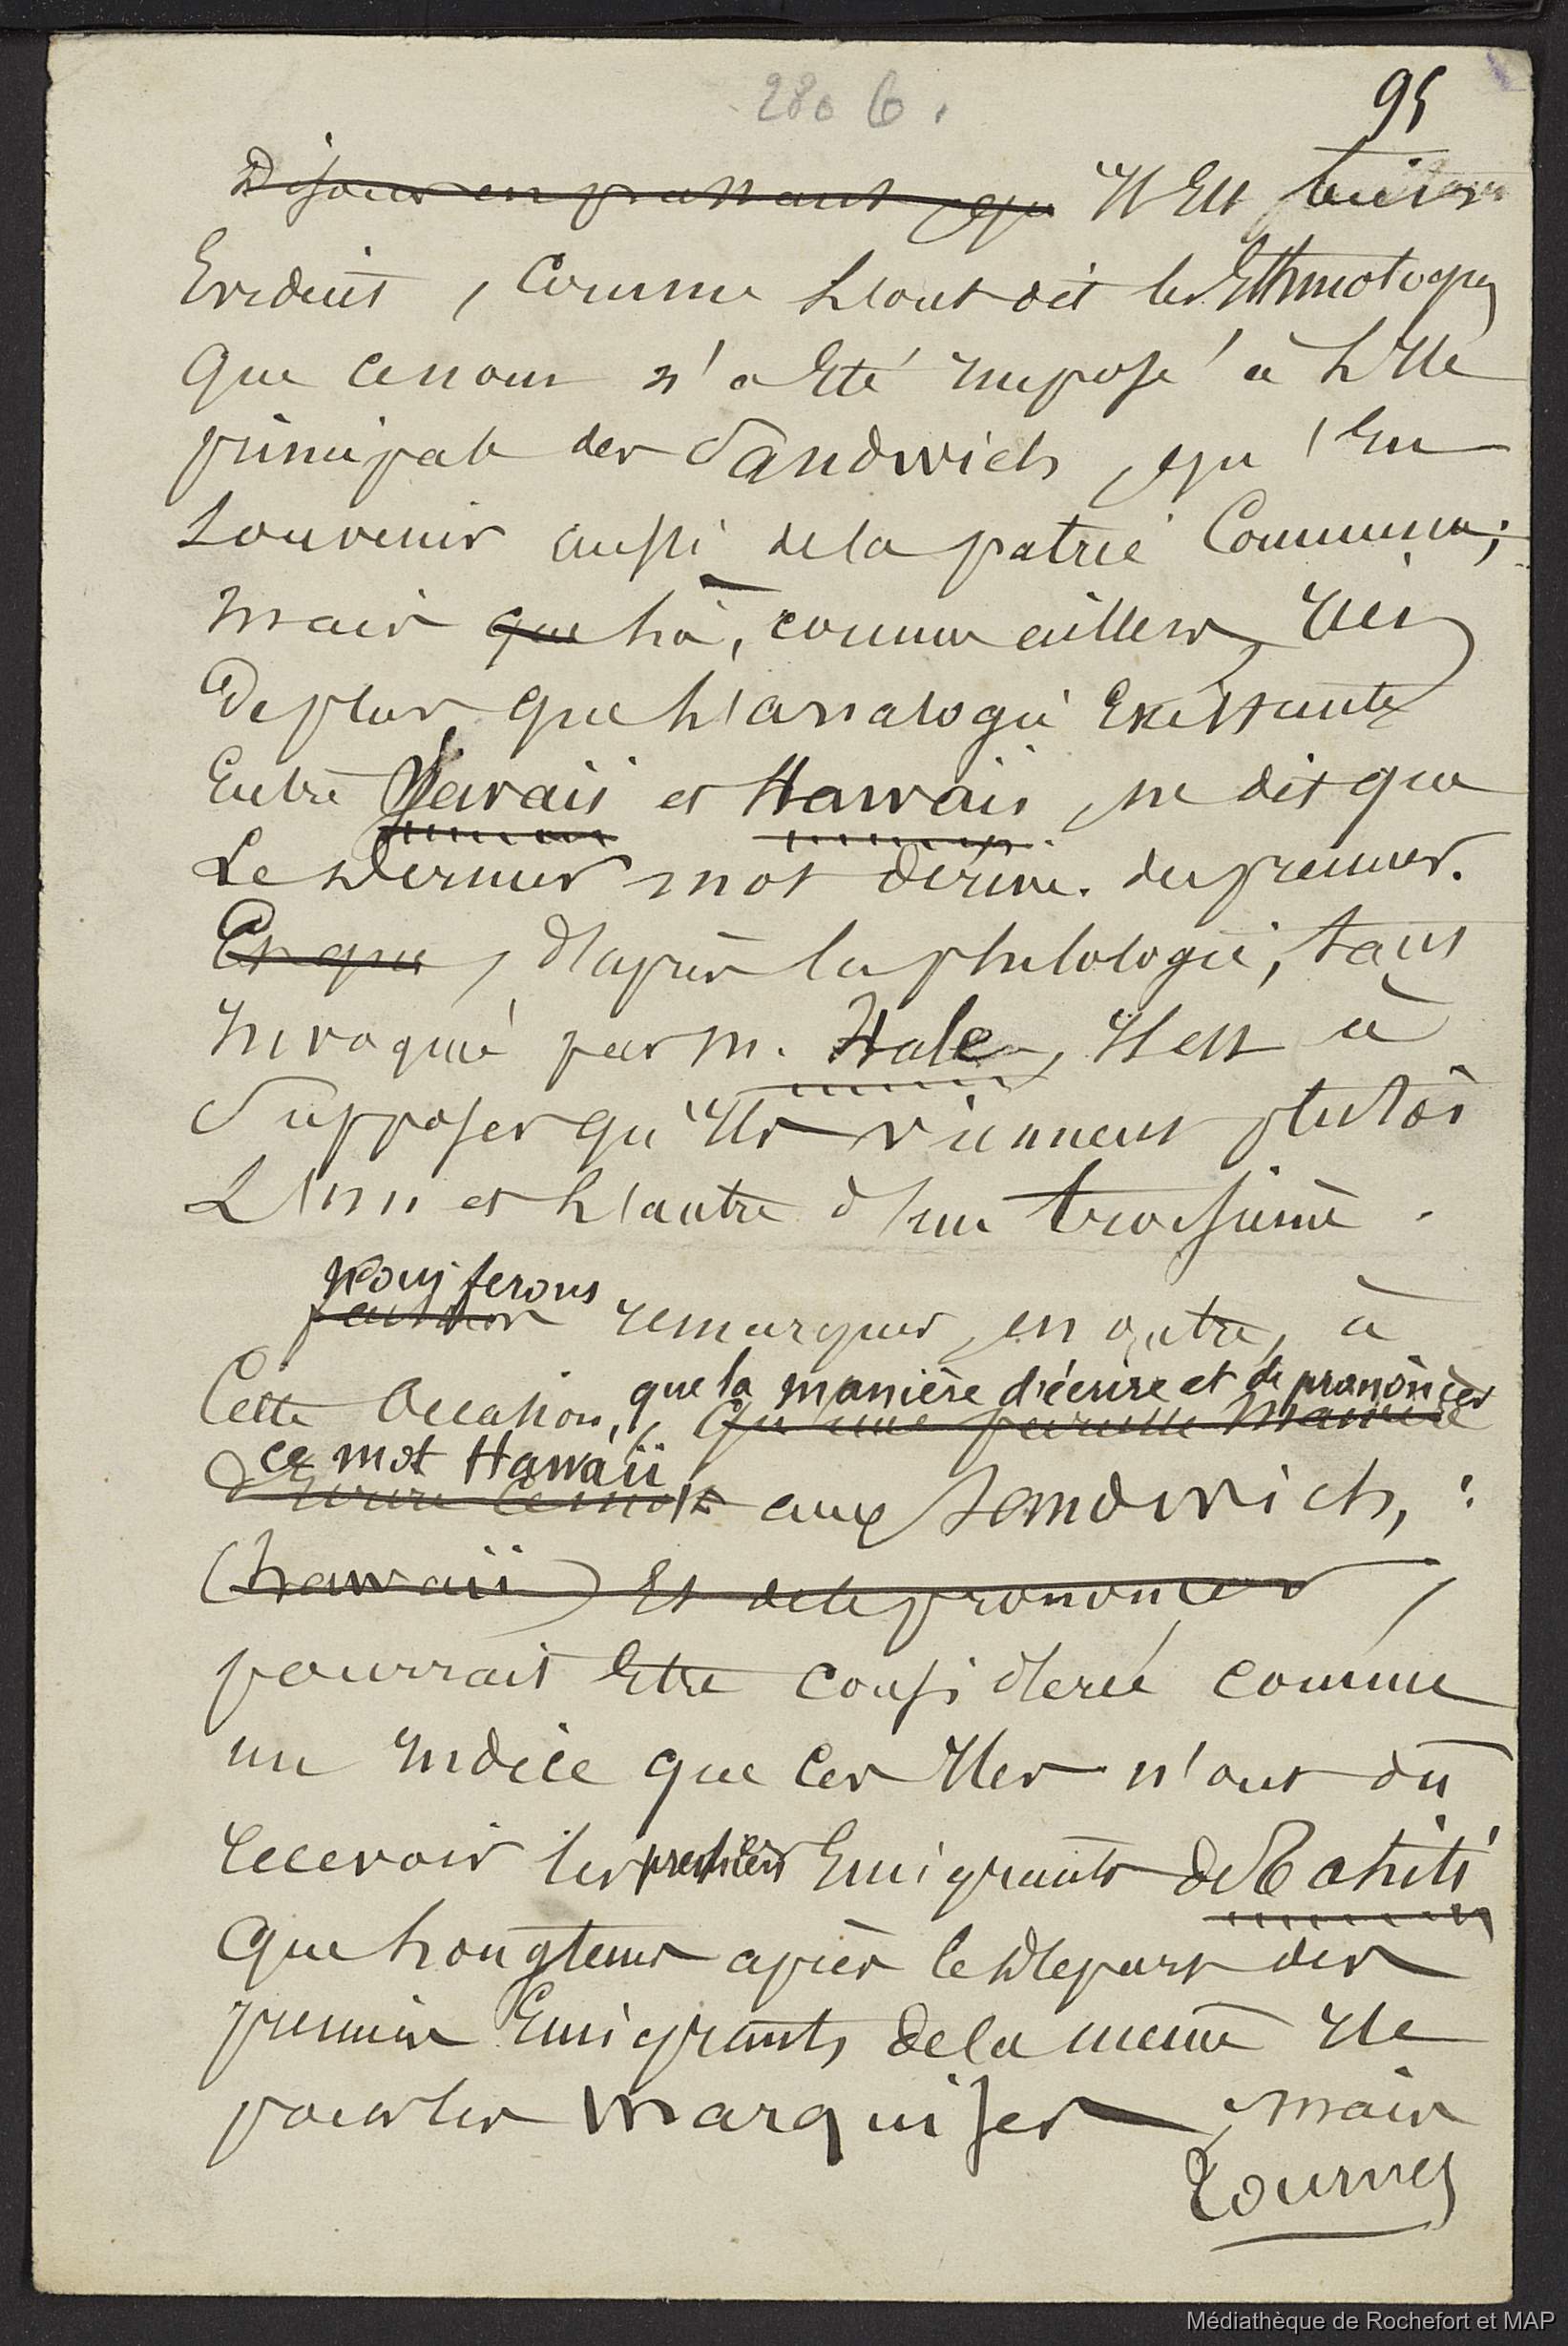 280 6.
95
Disons en passant qu' Il Est bien
Evident, Comme L'ont dit les Ethnologues
que ce nom n'a Eté imposé à L'Ile
principale des Sandwich, qu'En
Souvenir aussi de la patrie Commune;
Mais que Là, comme ailleurs, rien
de plus que L'analogie Existante
Entre Savaii et Hawaii, ne dit que
Le dernier mot dérive du premier.
Et que, d'après la philologie, tant
invoquée par M. Hale, Il est à
Supposer qu'Ils viennent plutôt
L'un et L'autre d'un troisième.
Nous ferons
faisons remarquer, en outre, à
Cette Occasion, que la manière d'écrire et de prononcer
qu'une pareille manière
ce mot Hawaii
d'Ecrire ce mot aux Sandwich, :
(hawaii) Et de le prononcer,
pourrait Etre considérée comme
un Indice que Ces Iles n'ont dû
recevoir les premiers Emigrants de Tahiti
que Longtems après le départ des
premiers Emigrants de la même Ile
pour les Marquises, mais
Tournez
Médiathèque de Rochefort et MAP